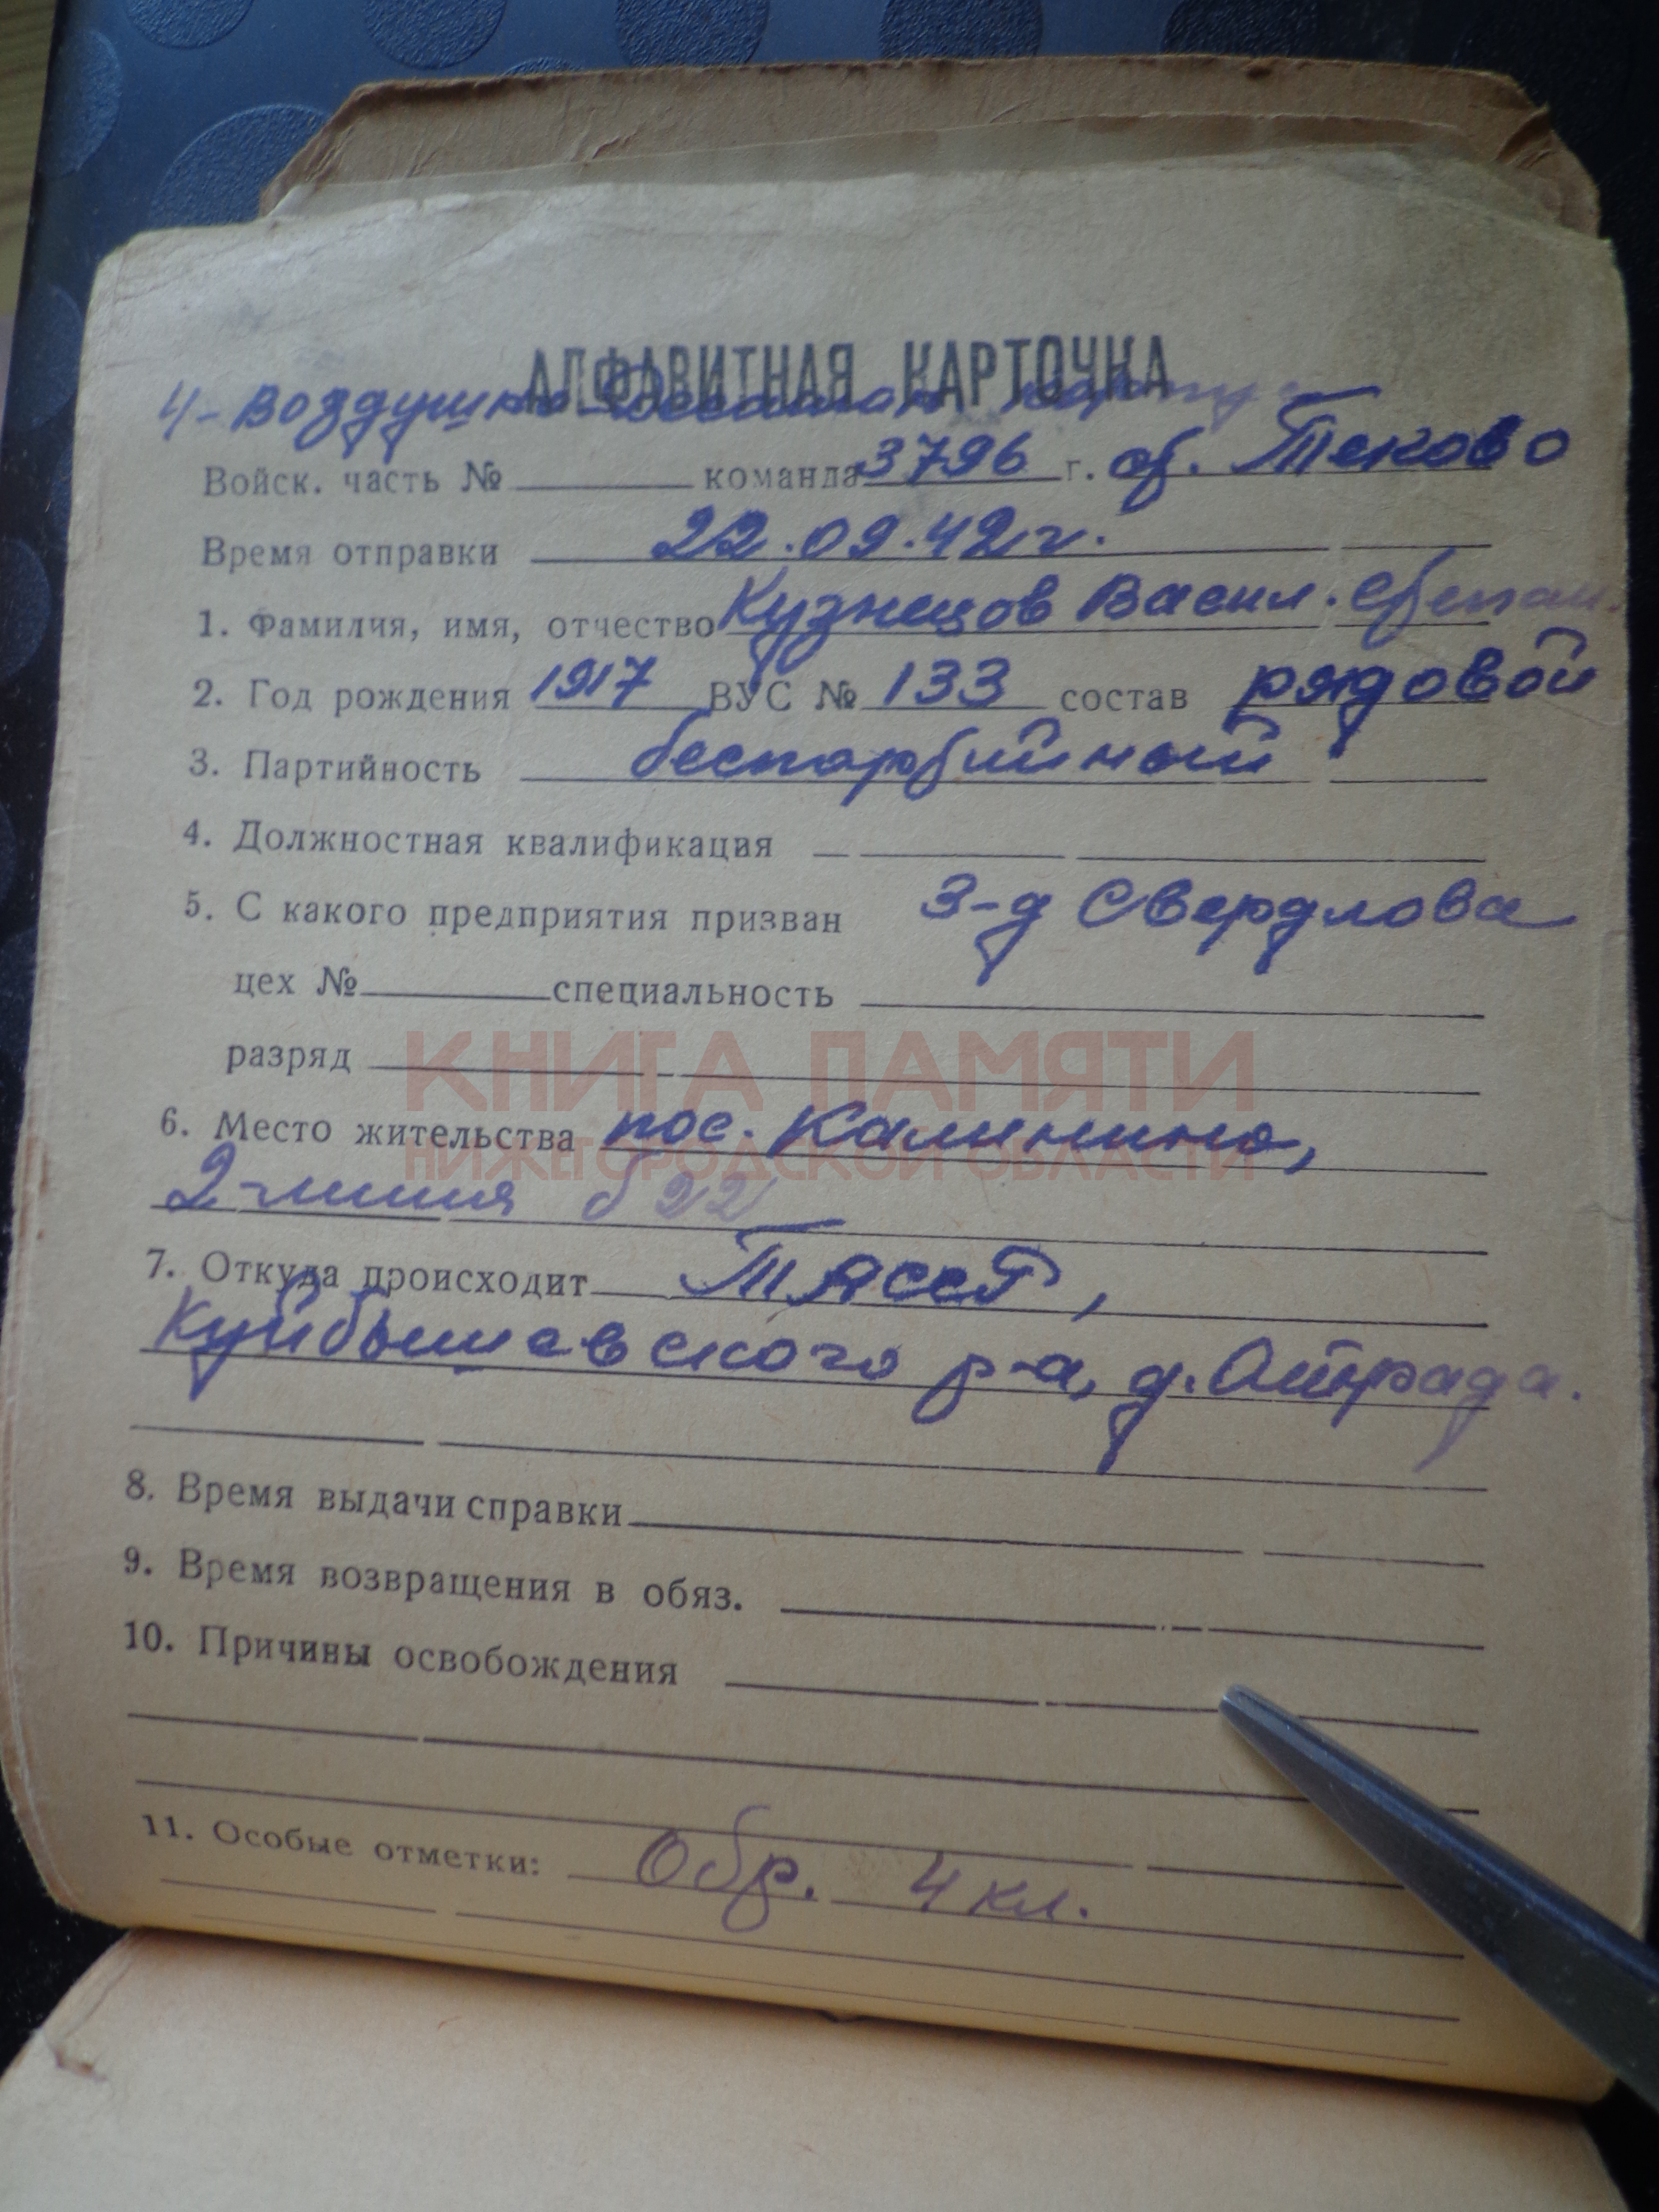 АЛФАВИТНАЯ КАРТОЧКА
4-Воздушно-Десантн корпус
Войск. часть № команда 3796 г. ст. Теково
Время отправки 22.09.42 г.
1. Фамилия, имя, отчество Кузнецов Васил. Степан.
2. Год рождения 1917 ВУС № 133 состав рядовой
3. Партийность беспартийный
4. Должностная квалификация
5. С какого предприятия призван З-д Свердлова
цех № специальность
разряд
КНИГА ПАМЯТИ
6. Место жительства пос. Калинино,
НИЖЕГОРОДСКОЙ ОБЛАСТИ
2 линия д 22
7. Откуда происходит ТАССР,
Куйбышевского р-а, д.
8. Время выдачи справки
9. Время возвращения в обяз.
10. Причины освобождения
11. Особые отметки: Обр. 4 кл.